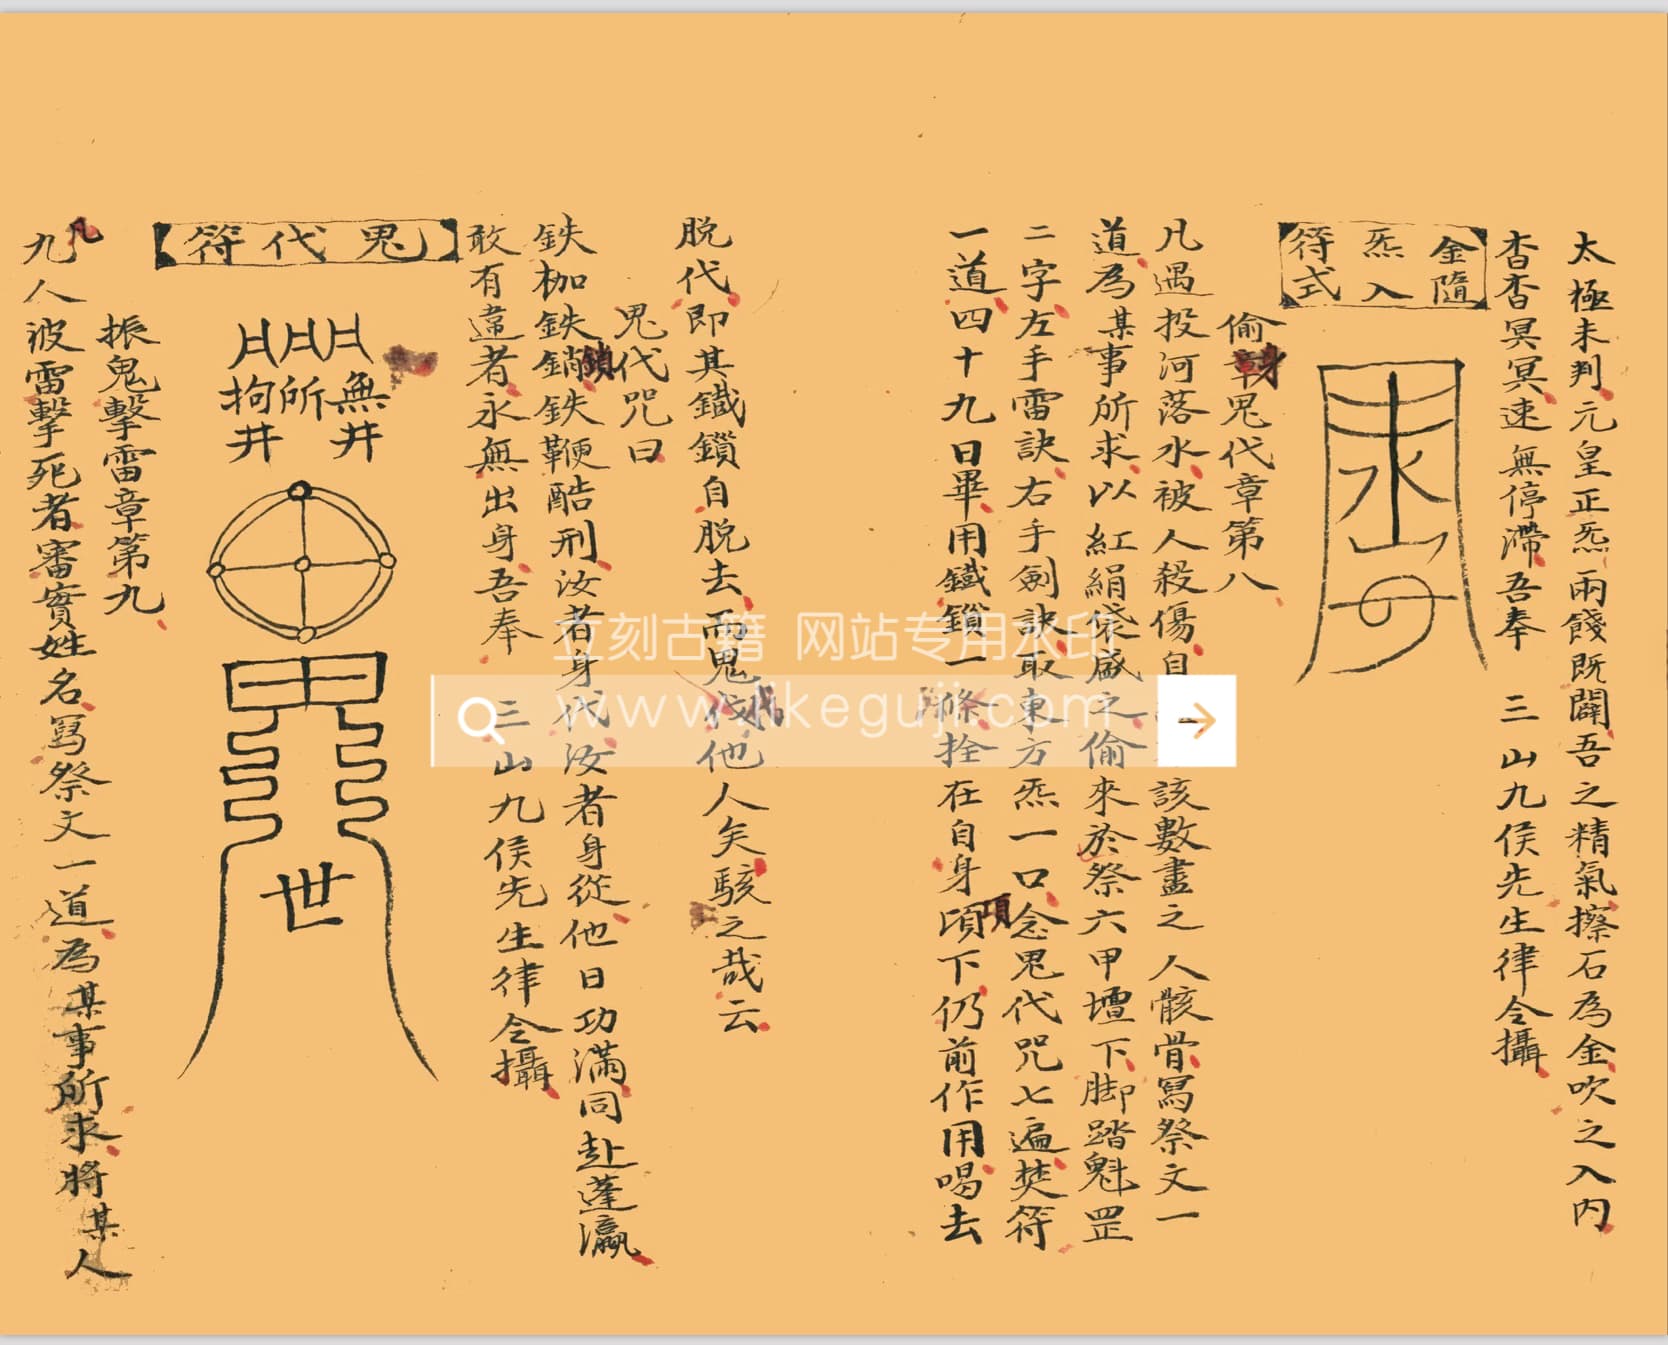 太極未判元皇正炁兩餞既闢吾之精氣擦石為金吹之入內
杳杳冥冥速無停滯吾奉 三山九侯先生律令攝
金隨
炁入
符式
偷身鬼代章第八
凡遇投河落水被人殺傷自 該數盡之人骸骨寫祭文一
道為某事所求以紅絹袋盛之偷來於祭六甲壇下脚踏魁罡
二字左手雷訣右手劍訣取東方炁一口念鬼代咒七遍焚符
一道四十九日畢用鐵鎖一條拴在自身項下仍前作用喝去
脫代即其鐵鎖自脫去而鬼代他人矣駭之哉云
鬼代咒曰
鉄枷鉄鎖鉄鞭酷刑汝者身代汝者身從他日功滿同赴蓬瀛
敢有違者永無出身吾奉 三山九侯先生律令攝
鬼代符
無井
所
拘井
世
振鬼擊雷章第九
凡人被雷擊死者審實姓名寫祭文一道為某事所求將某人
立刻古籍 网站专用水印
www.likeguji.com